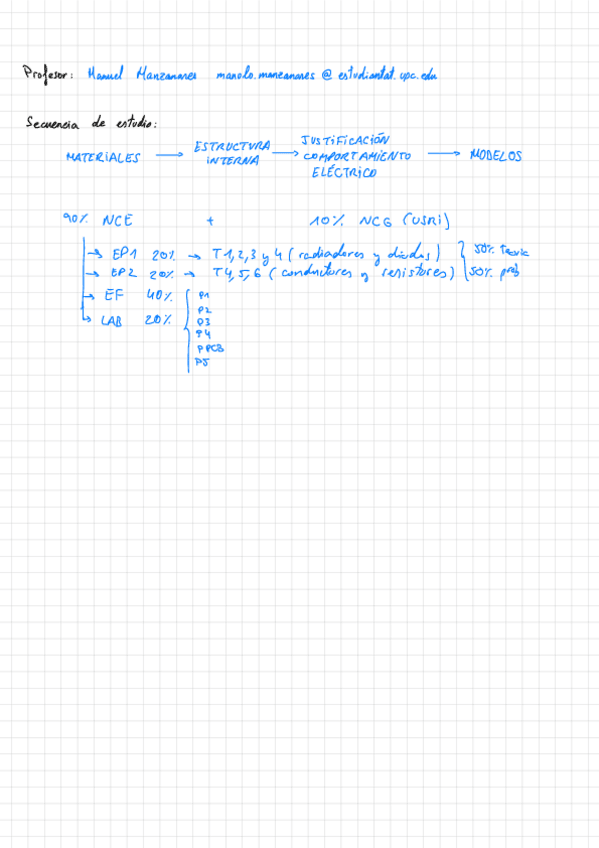 Profesor: Manuel Manzanares manolo.manzanares @ estudiantat.upc.edu
Secuencia de estudio:
MATERIALES → ESTRUCTURA INTERNA → JUSTIFICACIÓN COMPORTAMIENTO ELÉCTRICO → MODELOS
90% NCE + 10% NCG (USRI)
→ EP1 20% → T1,2,3 y 4 (radiadores y diodos) 50% teoria
→ EP2 20% → T4,5,6 (conductores y resistores) 50% prob
→ EF 40%
→ LAB 20%
P1
P2
P3
P4
PPCB
P5